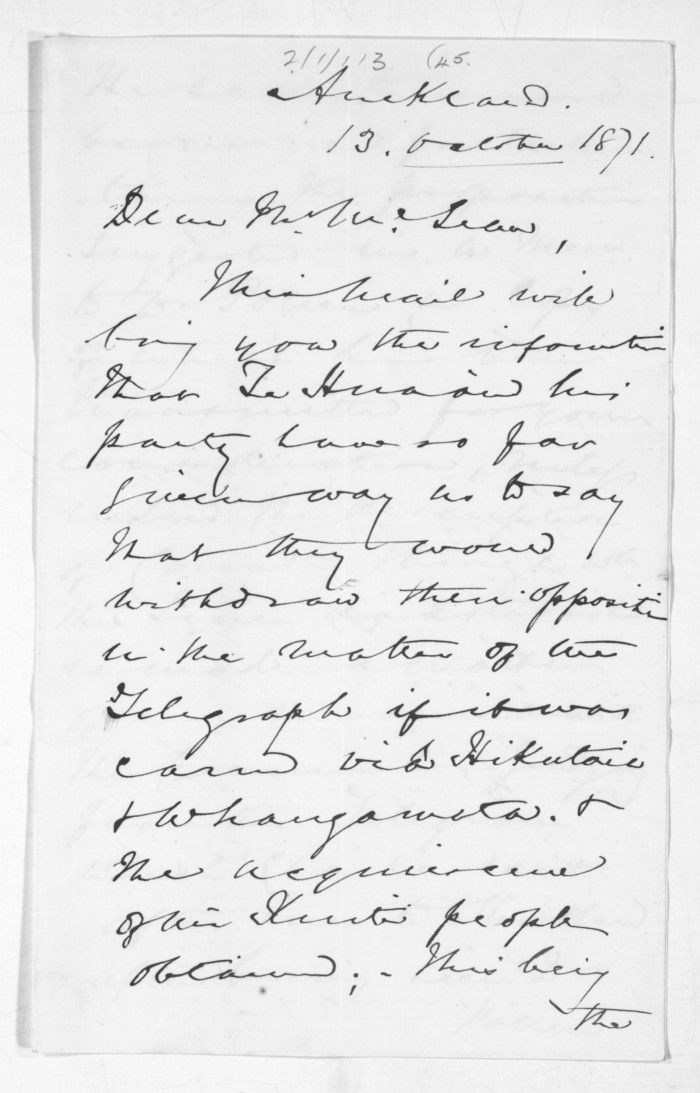 2/1/113 (45.
Auckland.
13. October 1871.
Dear Mr. McLean,
This mail will
bring you the information
that Te Hira and his
party have so far
given way as to say
that they would
withdraw their opposition
in the matter of the
Telegraph if it was
carried viâ Hikutaia
& Whangamata. &
the acquiescence
of his people
obtained; - This being
the